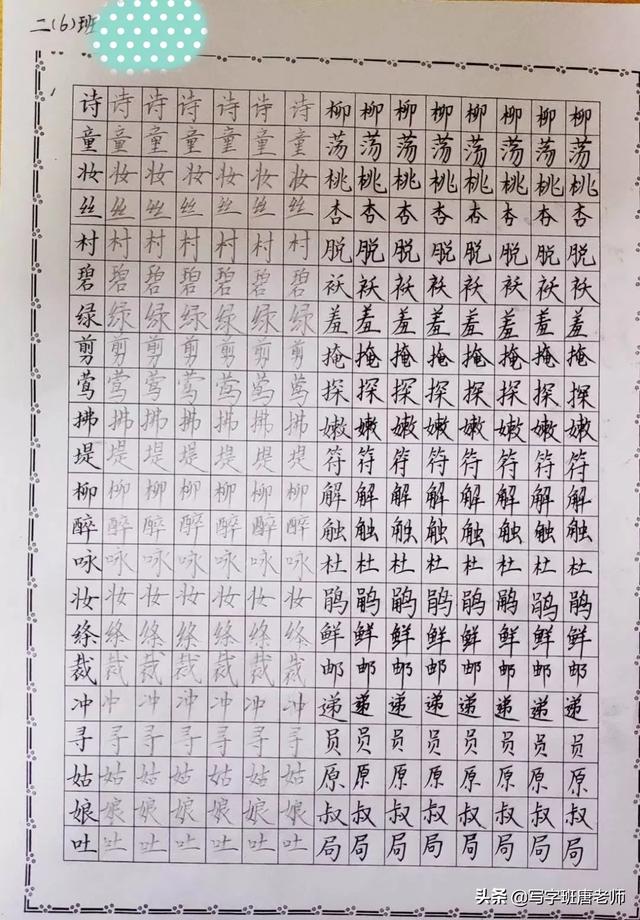 二(6)班
诗诗诗诗诗诗诗柳柳柳柳柳柳柳柳
童童童童童童童荡荡荡荡荡荡荡荡
妆妆妆妆妆妆妆桃桃桃桃桃桃桃桃
丝丝丝丝丝丝丝杏杏杏杏杏杏杏杏
村村村村村村村脱脱脱脱脱脱脱脱
碧碧碧碧碧碧碧袄袄袄袄袄袄袄袄
绿绿绿绿绿绿绿羞羞羞羞羞羞羞羞
剪剪剪剪剪剪剪掩掩掩掩掩掩掩掩
莺莺莺莺莺莺莺探探探探探探探探
拂拂拂拂拂拂拂嫩嫩嫩嫩嫩嫩嫩嫩
堤堤堤堤堤堤堤符符符符符符符符
柳柳柳柳柳柳柳解解解解解解解解
醉醉醉醉醉醉醉触触触触触触触触
咏咏咏咏咏咏咏杜杜杜杜杜杜杜杜
妆妆妆妆妆妆妆鹃鹃鹃鹃鹃鹃鹃鹃
绦绦绦绦绦绦绦鲜鲜鲜鲜鲜鲜鲜鲜
裁裁裁裁裁裁裁邮邮邮邮邮邮邮邮
冲冲冲冲冲冲冲递递递递递递递递
寻寻寻寻寻寻寻员员员员员员员员
姑姑姑姑姑姑姑原原原原原原原原
娘娘娘娘娘娘娘叔叔叔叔叔叔叔叔
吐吐吐吐吐吐吐局局局局局局局局
头条 @写字班唐老师